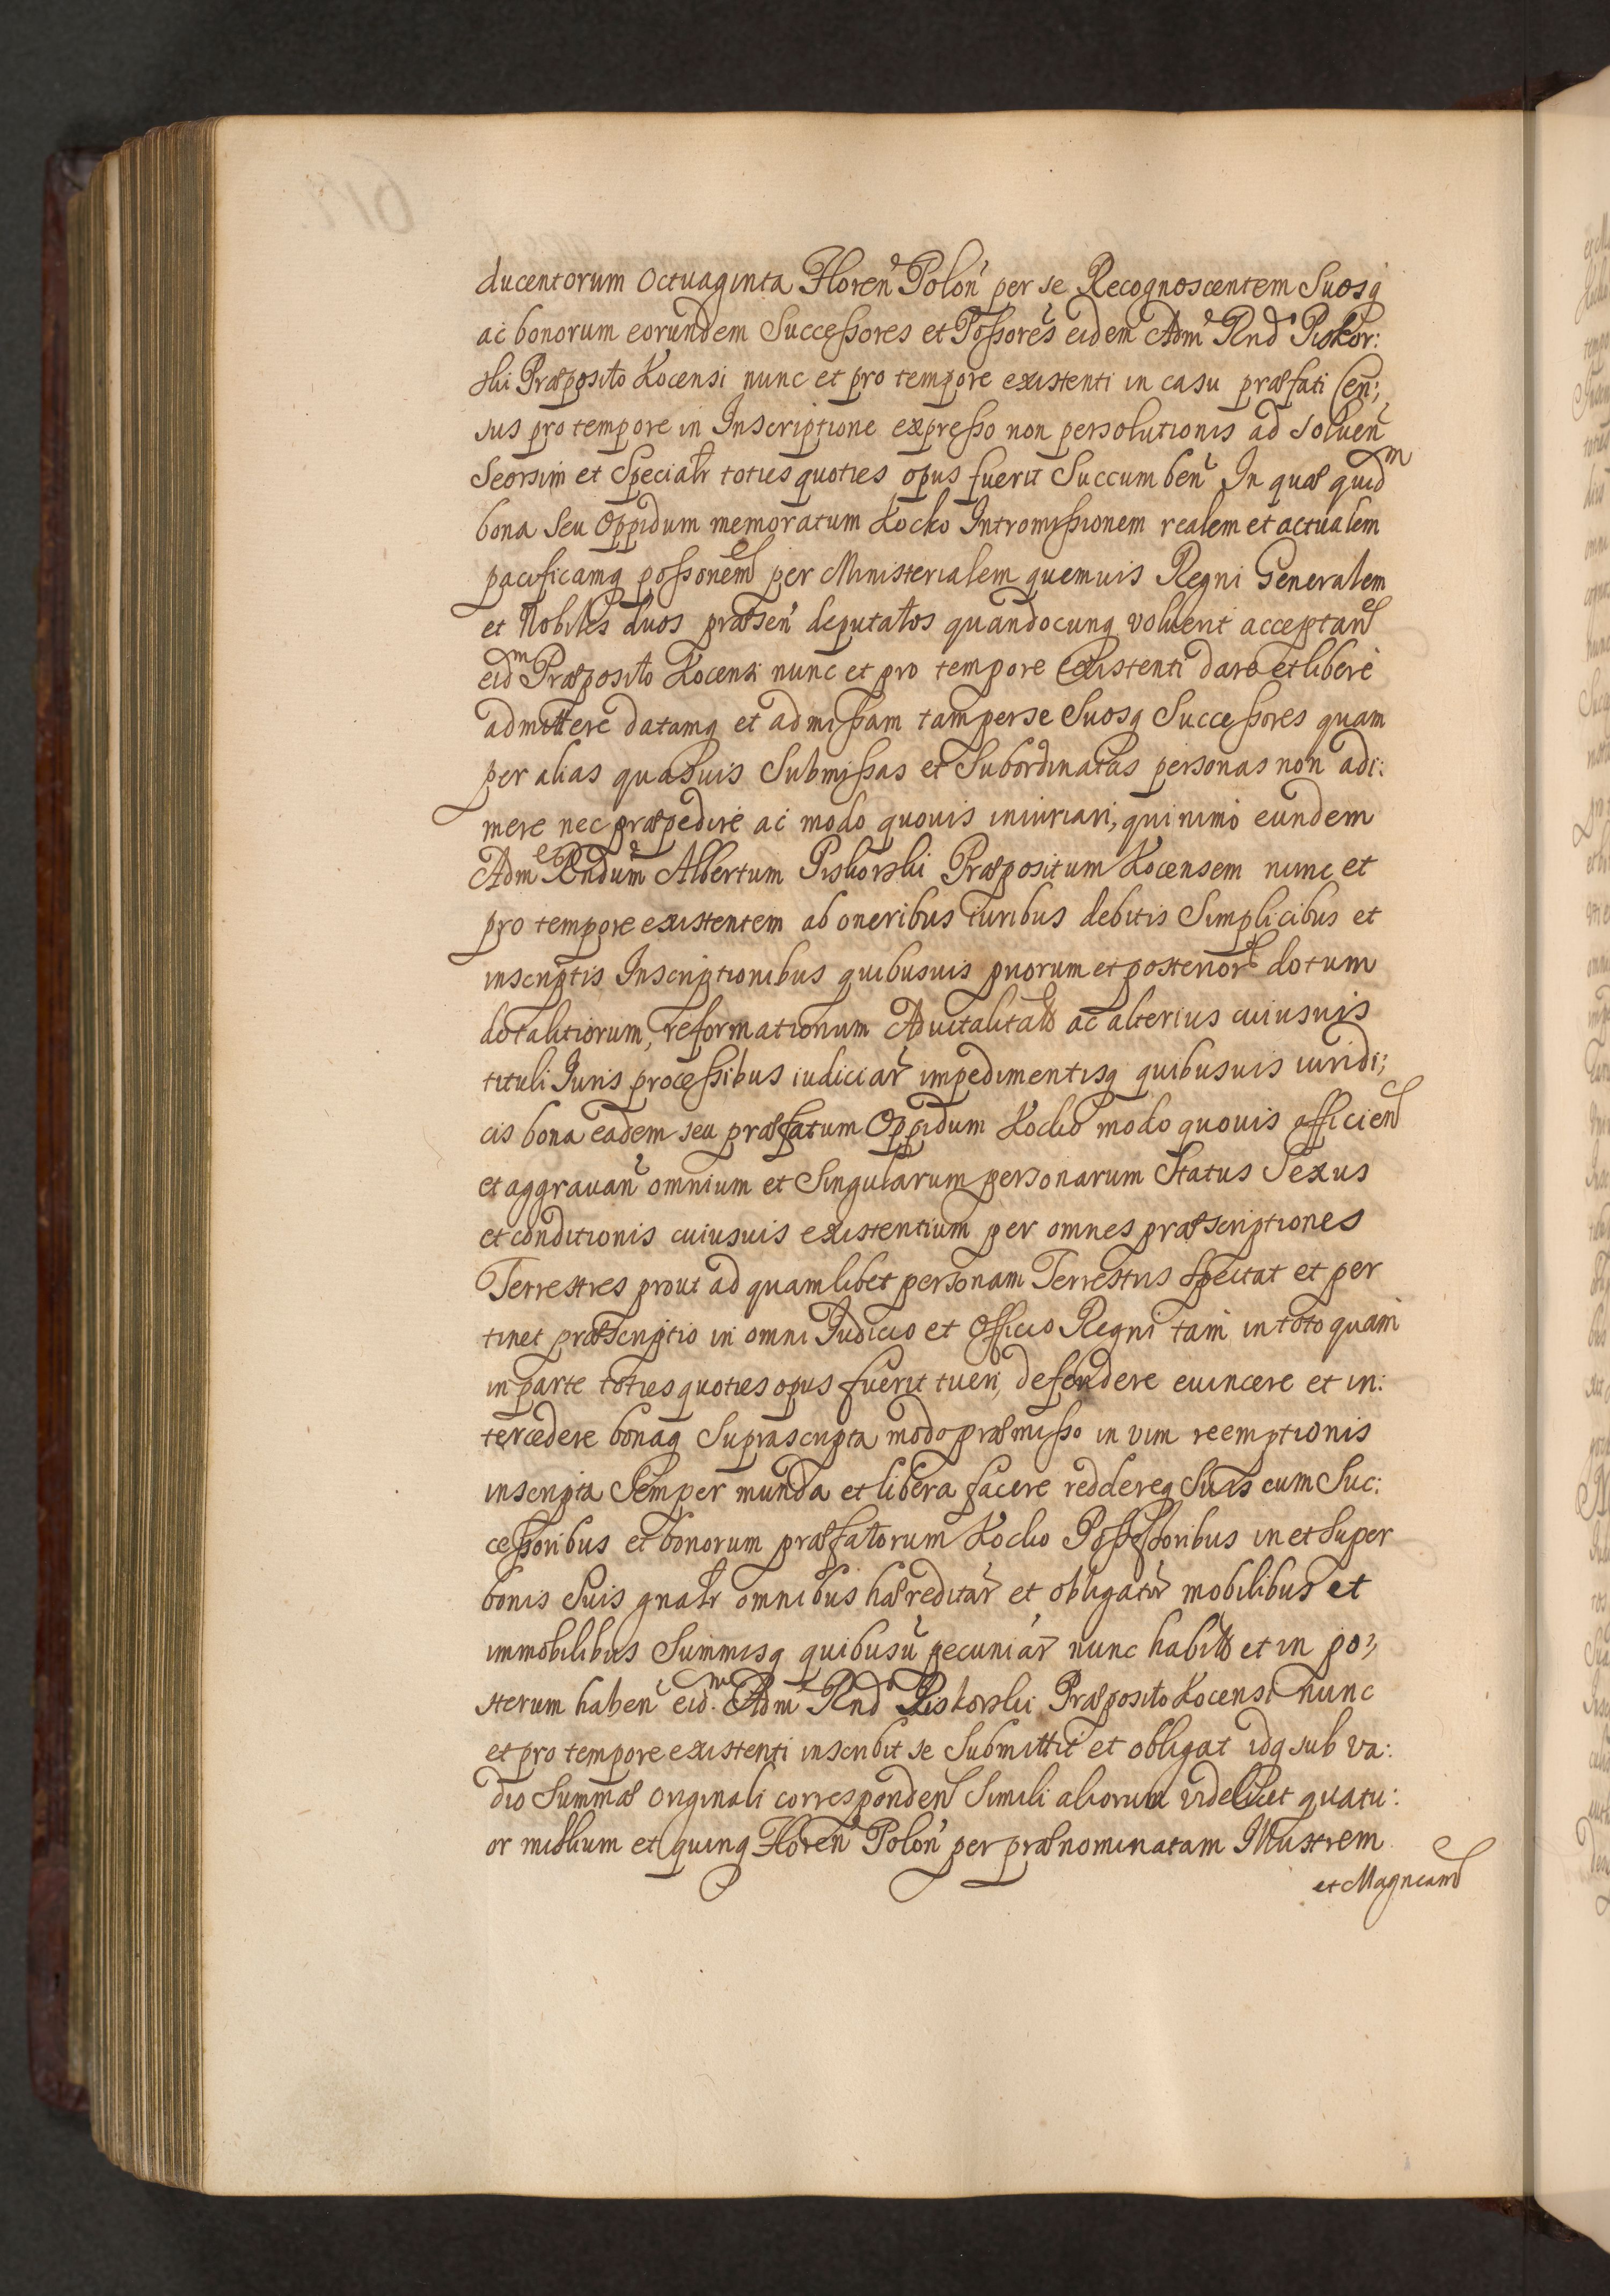 ducentorum octuaginta Floren Polon per se Recognoscentem Suosq
ac bonorum eorundem Successores et Possores eidem Adm Rnd Piskor:
ski Præposito Kocensi nunc et pro tempore existenti in casu præfati Cen:
sus pro tempore in Inscriptione expresso non persolutionis ad solven
Seorsim et Specialr toties quoties opus fuerit Succumben In quæ quidm
bona seu Oppidum memoratum Kocko Intromissionem realem et actualem
pacificamq possonem per Ministerialem quemuis Regni Generalem
et Nobiles duos præsen deputatos quandocunq voluerit acceptan
eidm Præposito Kocensi nunc et pro tempore Existenti dare et libere
admittere datamq et admissam tam per se Suosq Successores quam
per alias quasuis Submissas et Subordinatas personas non adi:
mere nec præpedire ac modo quouis iniuriari, quinimo eundem
Adm Rndum Albertum Piskorski Præpositum Kocensem nunc et
pro tempore existentem ab oneribus iuribus debitis Simplicibus et
inscriptis Inscriptionibus quibusuis priorum et posterior dotum
dotalitiorum, reformationum Aduitalitat ac alterius cuiusuis
tituli Juris processibus iudiciar impedimentisq quibusuis iuridi;
cis bona eadem seu præfatum Oppidum Kocko modo quouis afficien
et aggrauan omnium et Singularum personarum Status Sexus
et conditionis cuiusuis existentium per omnes præscriptiones
Terrestres prout ad quamlibet personam Terrestris spectat et per
tinet præscriptio in omni Judicio et Officio Regni tam in toto quam
in parte toties quoties opus fuerit tueri, defendere euincere et in:
tercedere bonaq Suprascripta modo præmisso in vim reemptionis
inscripta Semper munda et libera facere reddereq Suis cum Suc:
cessoribus et bonorum præfatorum Kocko Possessoribus in et super
bonis Suis gnalr omnibus hæreditar et obligator mobilibus et
immobilibus Summisq quibusu pecuniar nunc habit et in po;
sterum haben eidm. Adm Rnd Piskorski Præposito Kocensi nunc
et pro tempore existenti inscribit se Submittit et obligat idq sub va:
dio Summæ originali corresponden Simili aliorum videlicet quatu:
or millium et quinq Floren Polon per prænominatam Illustrem
et Magncam